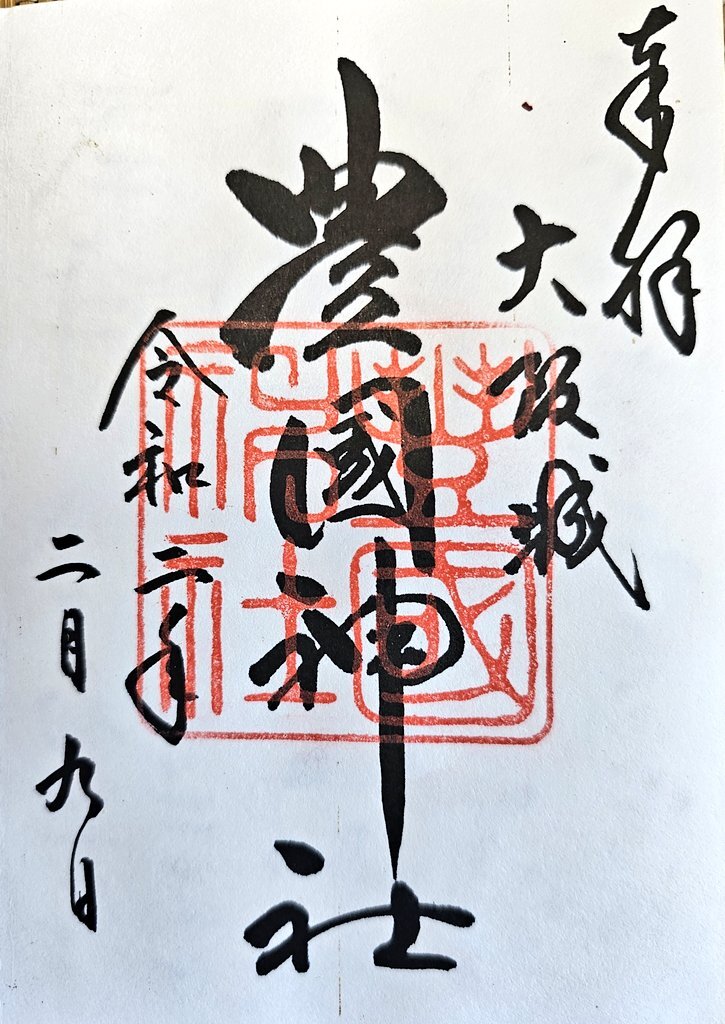 奉拝
大阪城
豊國神社
令和二年
二月九日
豊國神社